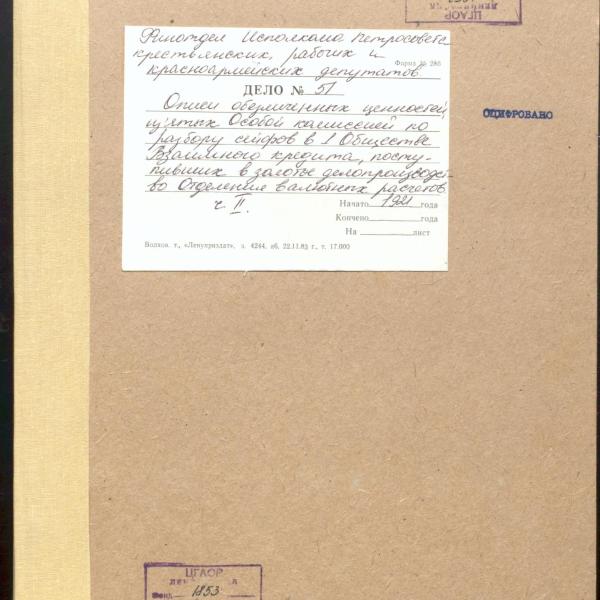 ЦГАОР
Финотдел Исполкома Петросовета
крестьянских, рабочих и
Форма № 286
красноармейских депутатов.
ДЕЛО № 51
ОЦИФРОВАНО
Описи обезличенных ценностей,
изъятых Особой комиссией по
разбору сейфов в 1 Обществе
Взаимного кредита, посту-
пивших в золотое делопроизводст-
во Отделения валютных расчетов
ч. II.
Начато 1921 года
Кончено года
На лист
Волхов. т., «Ленуприздат», з. 4244, аб, 22.11.83 г., т. 17.000
ЦГАОР
Фонд 1853